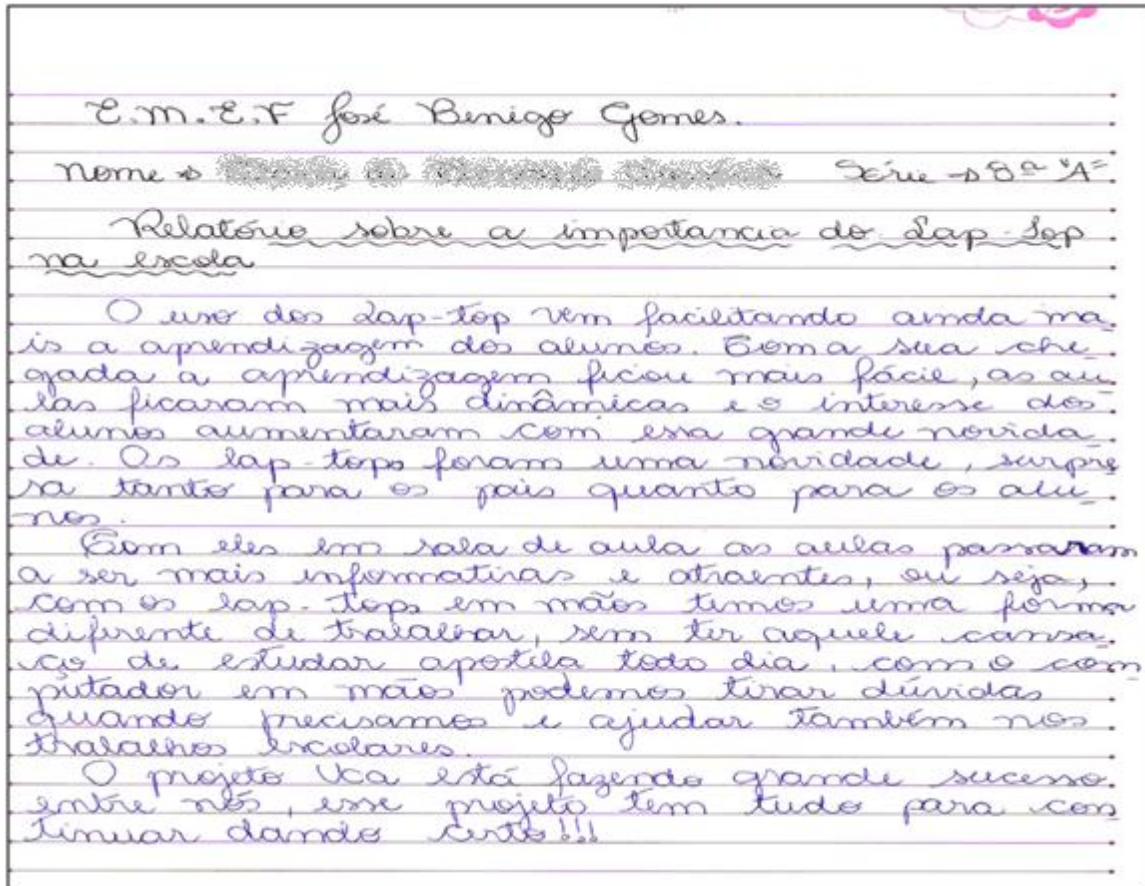 E.M.E.F José Benigo Gomes.
Nome → Série → 8ª "A"
Relatório sobre a importancia do Lap-Top
na escola
O uso dos Lap-top vem facilitando ainda ma
is a aprendizagem dos alunos. Com a sua che
gada a aprendizagem ficou mais fácil, as au
las ficaram mais dinâmicas e o interesse dos
alunos aumentaram com essa grande novida
de. Os lap-tops foram uma novidade, surpre
sa tanto para os pais quanto para os alu
nos.
Com eles em sala de aula as aulas passaram
a ser mais informativas e atraentes, ou seja,
com os lap-tops em mãos temos uma forma
diferente de trabalhar, sem ter aquele cansa
ço de estudar apostila todo dia, com o com
putador em mãos podemos tirar dúvidas
quando precisamos e ajudar também nos
trabalhos escolares.
O projeto Uca está fazendo grande sucesso
entre nós, esse projeto tem tudo para con
tinuar dando certo!!!